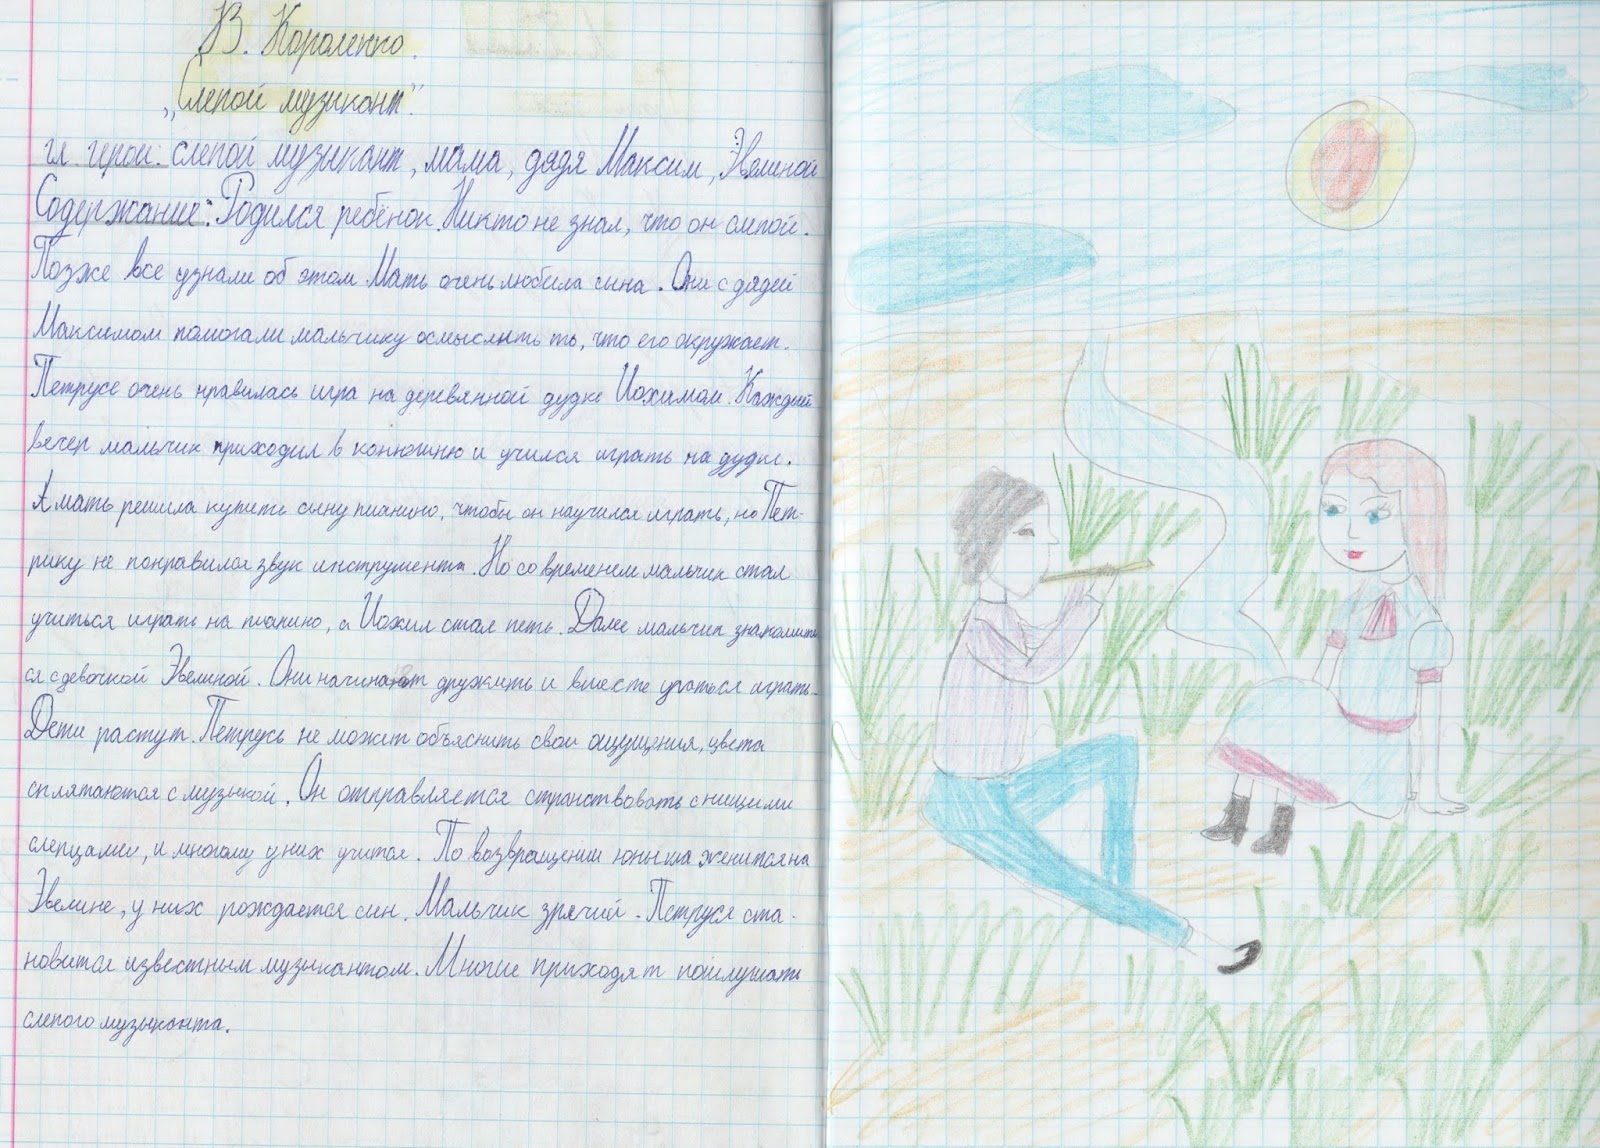 В. Короленко.
„Слепой музыкант".
гл. герои: слепой музыкант, мама, дядя Максим, Эвелиной
Содержание: Родился ребёнок. Никто не знал, что он слепой.
Позже все узнали об этом. Мать очень любила сына. Они с дядей
Максимом помогали мальчику осмыслить то, что его окружает.
Петрусе очень нравилась игра на деревянной дудке Иохимом. Каждый
вечер мальчик приходил в конюшню и учился играть на дудке.
А мать решила купить сыну пианино, чтобы он научился играть, но Пет-
рику не понравился звук инструмента. Но со временем мальчик стал
учиться играть на пианино, а Иохим стал петь. Далее мальчик знакомит
ся с девочкой Эвелиной. Они начинают дружить и вместе учаться играть.
Дети растут. Петрусь не может объяснить свои ощущения, цвета
сплятаются с музыкой. Он отправляется странствовать с нищими
слепцами, и многому у них учится. По возвращении юноша женится на
Эвелине, у них рождается сын. Мальчик зрячий. Петруся ста-
новится известным музыкантом. Многие приходят послушать
слепого музыканта.